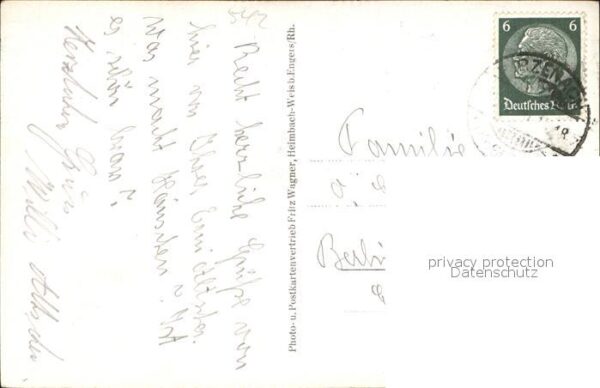 Recht herzliche Grüße von
hier von Ihrer
Was macht Hänschen? Ist
es schön brav?
Herzlicher Gruss
Willi
Photo- u. Postkartenvertrieb Fritz Wagner, Heimbach-Weis b. Engers/Rh.
6 6
Deutsches Reich
Familie
Berlin
privacy protection
Datenschutz